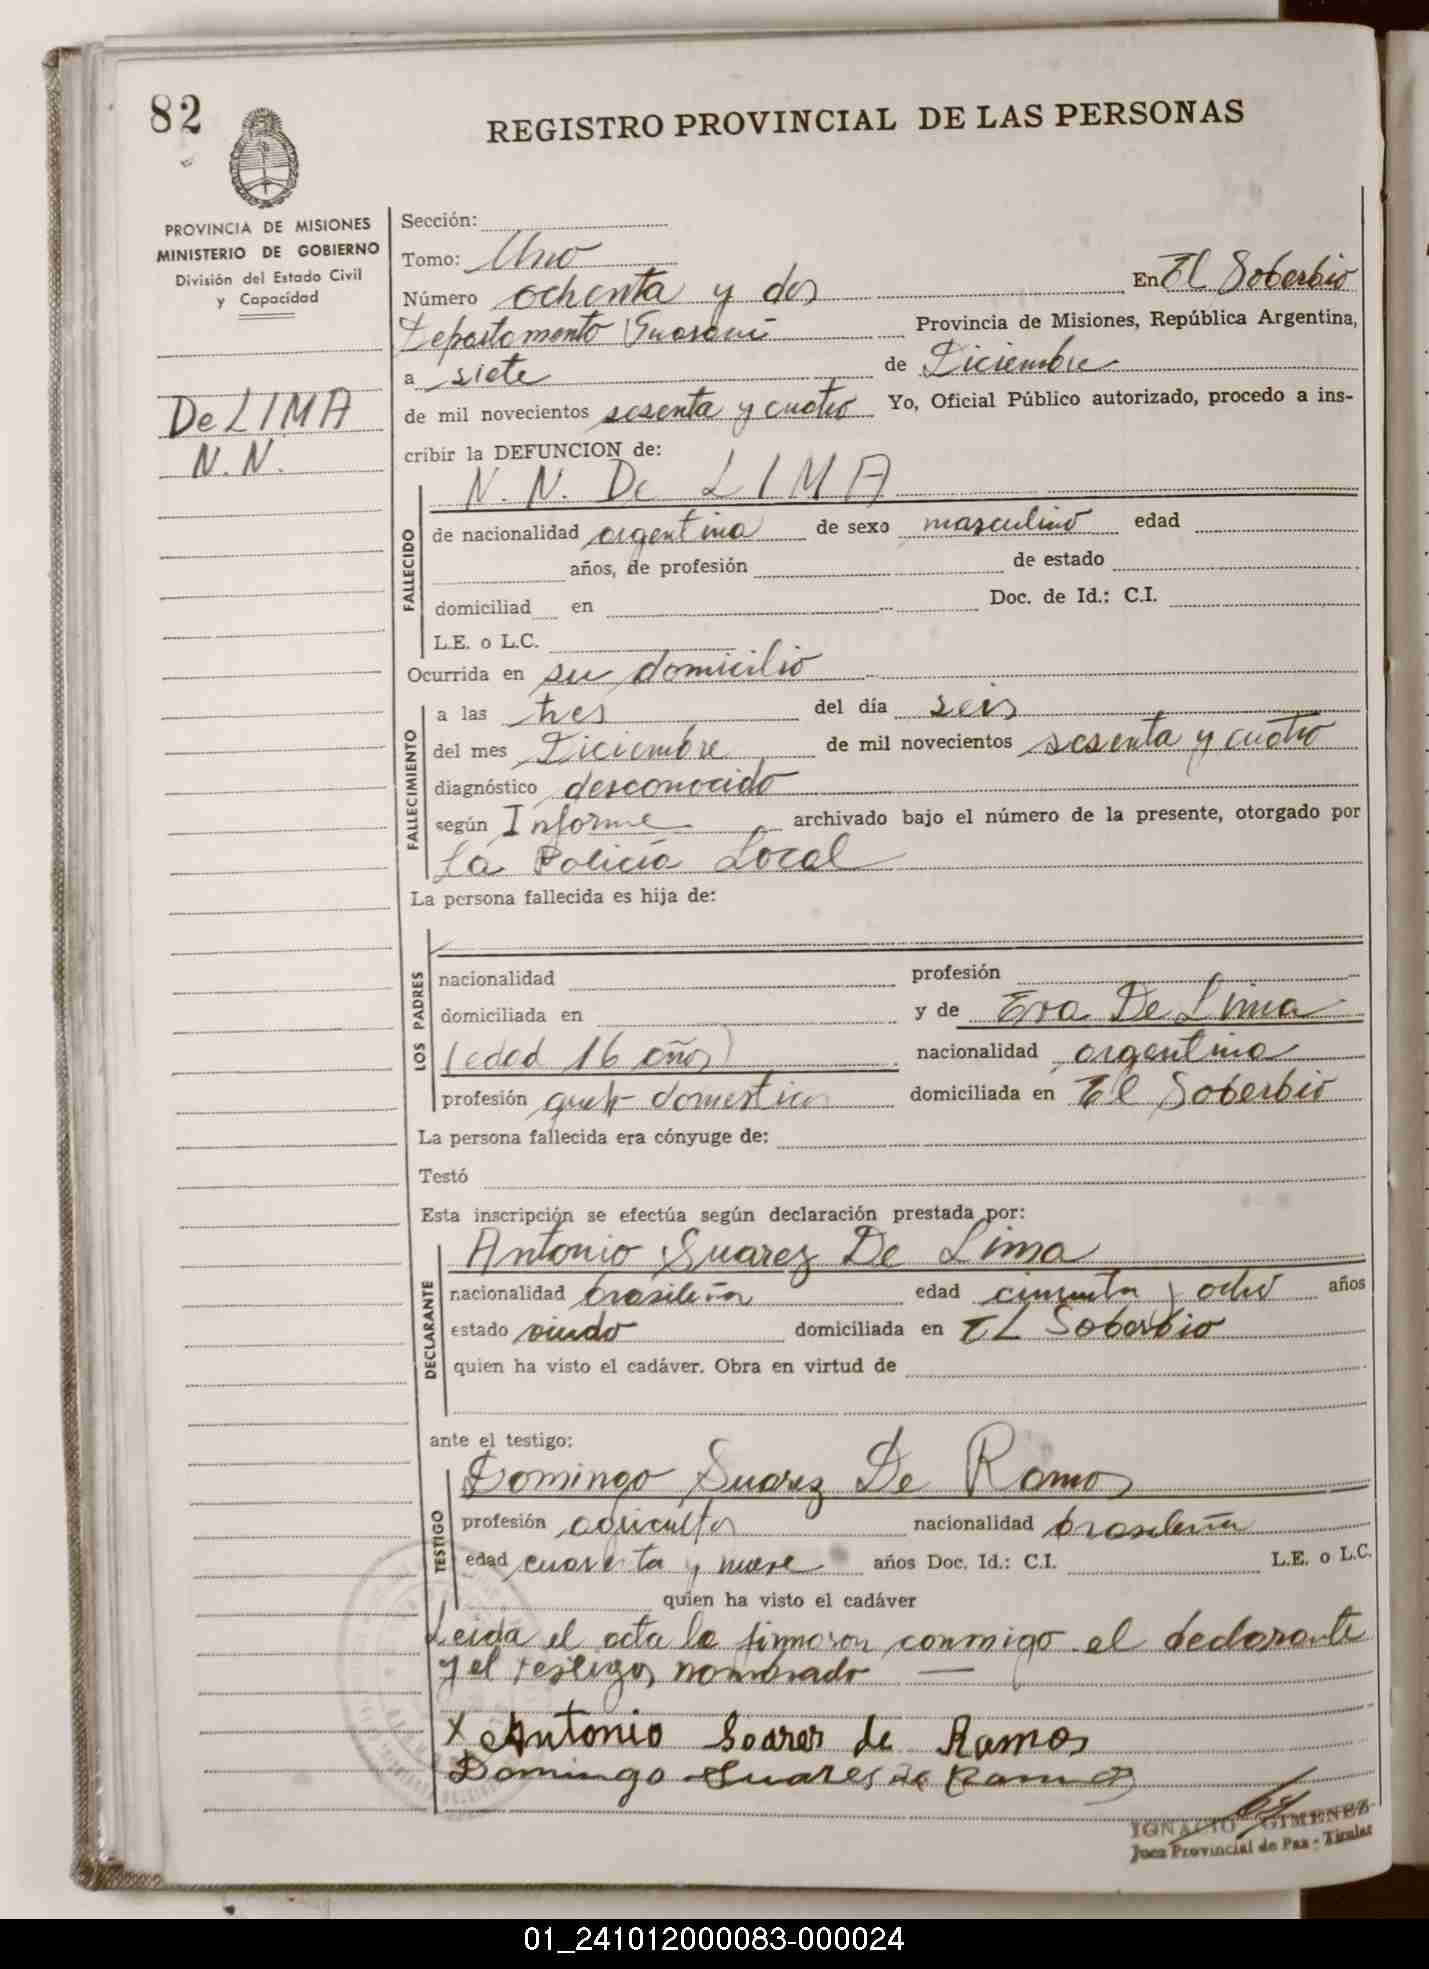 82
REGISTRO PROVINCIAL DE LAS PERSONAS
PROVINCIA DE MISIONES
MINISTERIO DE GOBIERNO
División del Estado Civil
y Capacidad
De LIMA
N. N.
Sección:
Tomo: Uno
Número ochenta y dos En El Soberbio
Departamento Guaraní Provincia de Misiones, República Argentina,
a siete de Diciembre
de mil novecientos sesenta y cuatro Yo, Oficial Público autorizado, procedo a ins-
cribir la DEFUNCION de:
N. N. De LIMA
FALLECIDO
de nacionalidad argentina de sexo masculino edad
años, de profesión de estado
domiciliad en Doc. de Id.: C.I.
L.E. o L.C.
Ocurrida en su domicilio
FALLECIMIENTO
a las tres del día seis
del mes Diciembre de mil novecientos sesenta y cuatro
diagnóstico desconocido
según Informe archivado bajo el número de la presente, otorgado por
La Policía Local
La persona fallecida es hija de:
LOS PADRES
nacionalidad profesión
domiciliada en y de Eva De Lima
(edad 16 años) nacionalidad argentina
profesión domestico domiciliada en El Soberbio
La persona fallecida era cónyuge de:
Testó
Esta inscripción se efectúa según declaración prestada por:
DECLARANTE
Antonio Suarez De Lima
nacionalidad brasileña edad cincuenta y ocho años
estado viudo domiciliada en EL Soberbio
quien ha visto el cadáver. Obra en virtud de
ante el testigo:
TESTIGO
Domingo Suarez De Ramos
profesión agricultor nacionalidad brasileña
edad cuarenta y nueve años Doc. Id.: C.I. L.E. o L.C.
quien ha visto el cadáver
Leida el acta la firmaron conmigo el declarante
y el testigo nombrado —
X Antonio Soares de Ramos
Domingo Suares de Ramos
IGNACIO GIMENEZ
Juez Provincial de Paz - Titular
01_241012000083-000024